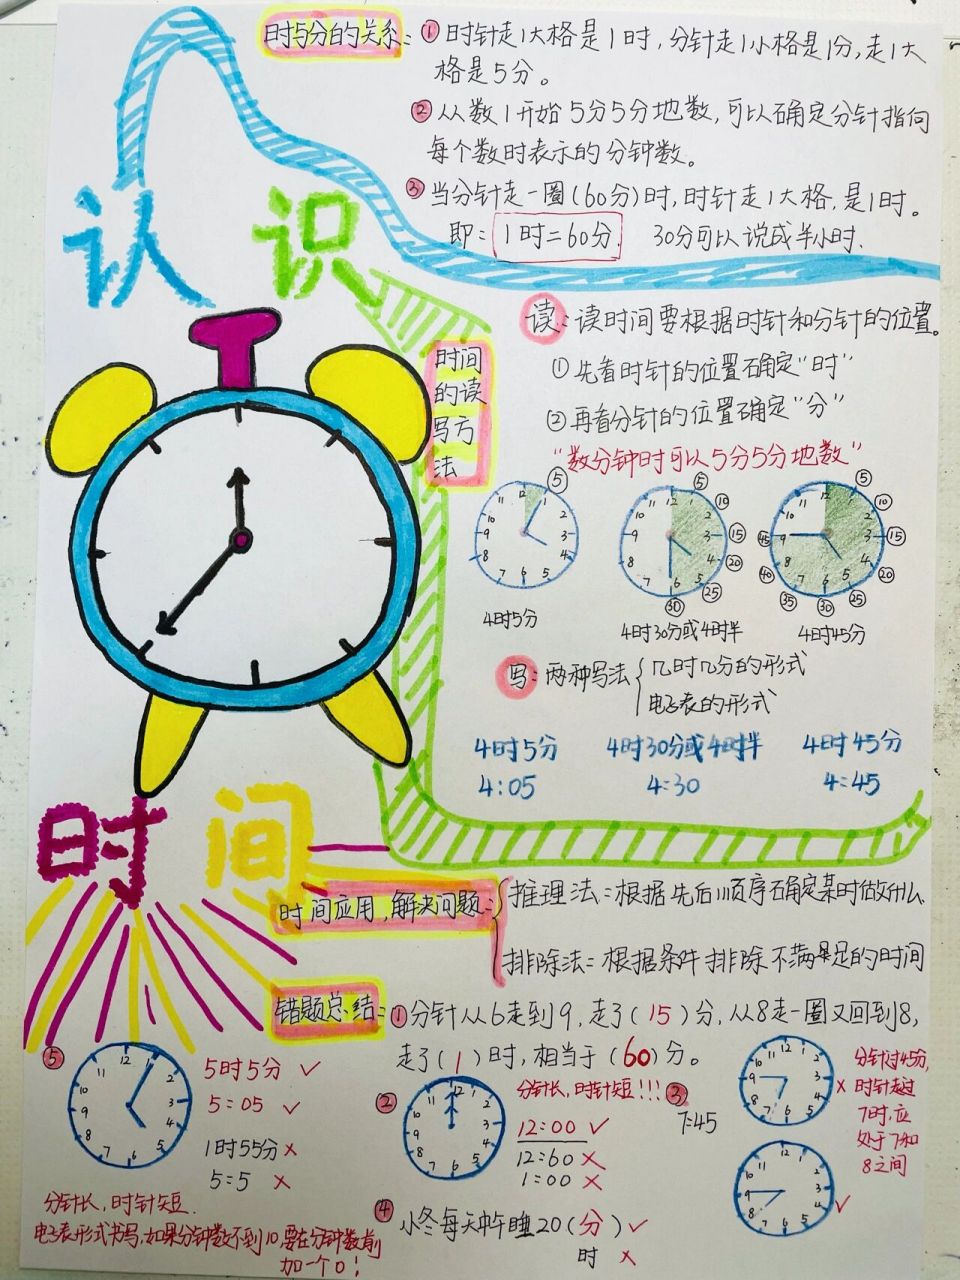 时与分的关系：①时针走1大格是1时，分针走1小格是1分，走1大
格是5分。
②从数1开始5分5分地数，可以确定分针指向
每个数时表示的分钟数。
③当分针走一圈(60分)时，时针走1大格，是1时。
即：1时=60分. 30分可以说成半小时.
认识
读：读时间要根据时针和分针的位置。
时间
的读
写方
法
①先看时针的位置确定"时"
②再看分针的位置确定"分"
"数分钟时可以5分5分地数"
12 1 2 3 4 5 6 7 8 9 10 11 ⑤
12 1 2 3 4 5 6 7 8 9 10 11 ⑤ ⑩ ⑮ ⑳ ㉕ ㉚
12 1 2 3 4 5 6 7 8 9 10 11 ⑤ ⑩ ⑮ ⑳ ㉕ ㉚ ㉟ ㊵ ㊺
4时5分 4时30分或4时半 4时45分
写：两种写法
几时几分的形式
电子表的形式
4时5分 4时30分或4时半 4时45分
4:05 4:30 4:45
时间
时间应用，解决问题：
推理法：根据先后顺序确定某时做什么.
排除法：根据条件排除不满足的时间
错题总结：①分针从6走到9，走了(15)分，从8走一圈又回到8，
走了(1)时，相当于(60)分。
⑤
12 1 2 3 4 5 6 7 8 9 10 11
5时5分 ✓
5:05 ✓
1时55分 ×
5:5 ×
分针长，时针短.
电子表形式书写，如果分钟数不到10，要在分钟数前
加一个0！
②
12 1 2 3 4 5 6 7 8 9 10 11
分针长，时针短!!!
12:00 ✓
12:60 ×
1:00 ×
③
7:45
12 1 2 3 4 5 6 7 8 9 10 11 ×
分针过45分,
时针走过
7时,应
处于7和
8之间
12 1 2 3 4 5 6 7 8 9 10 11 ✓
④
小冬每天中午睡20(分)✓
时 ×